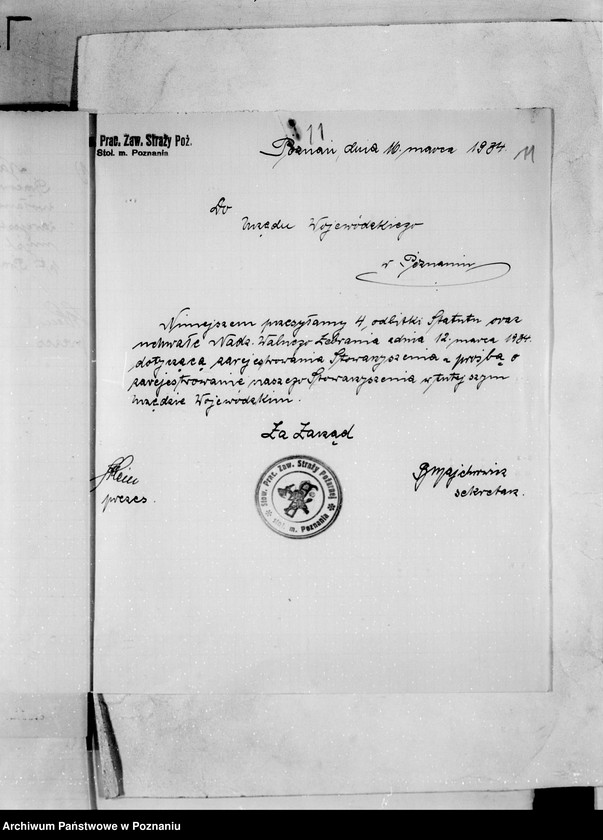 11
Prac. Zaw. Straży Poż.
Stoł. m. Poznania
Poznań, dnia 16. marca 1934.
11
Do
Urzędu Wojewódzkiego
w Poznaniu
Niniejszem przesyłamy 4, odbitki Statutu oraz
uchwałę Nadz. Walnego Zebrania z dnia 12. marca 1934.
dotyczącą zarejestrowania Stowarzyszenia z prośbą o
zarejestrowanie naszego Stowarzyszenia w tutejszym
Urzędzie Wojewódzkim.
Za Zarząd
prezes.
sekretarz.
Stow. Prac. Zaw. Straży Pożarnej
stoł. m. Poznania
Archiwum Państwowe w Poznaniu